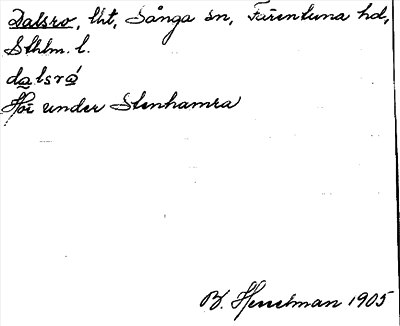 Dalsro, lht, Sånga sn, Färentuna hd,
Sthlm. l.
dalsró
Hör under Stenhamra
B. Hesselman 1905